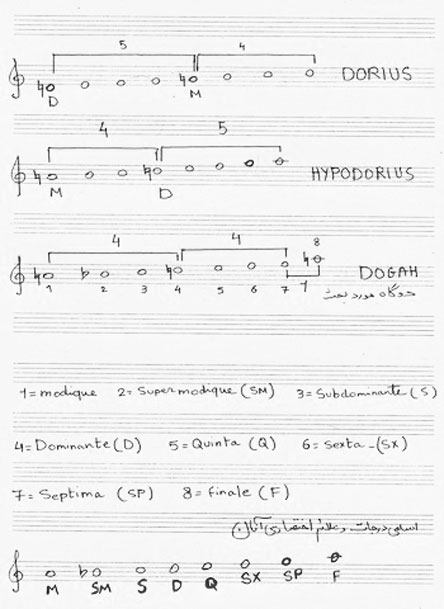 5 4
DORIUS
D M
4 5
HYPODORIUS
M D
4 4 8
DOGAH
1 2 3 4 5 6 7 1
دوگاه مورد بحث
1=modique 2=Supermodique (SM) 3=Subdominante (S)
4=Dominante (D) 5=Quinta (Q) 6=Sexta-(SX)
7=Septima (SP) 8=finale (F)
اسامی درجات و علائم اختصاری آنان
M SM S D Q SX SP F